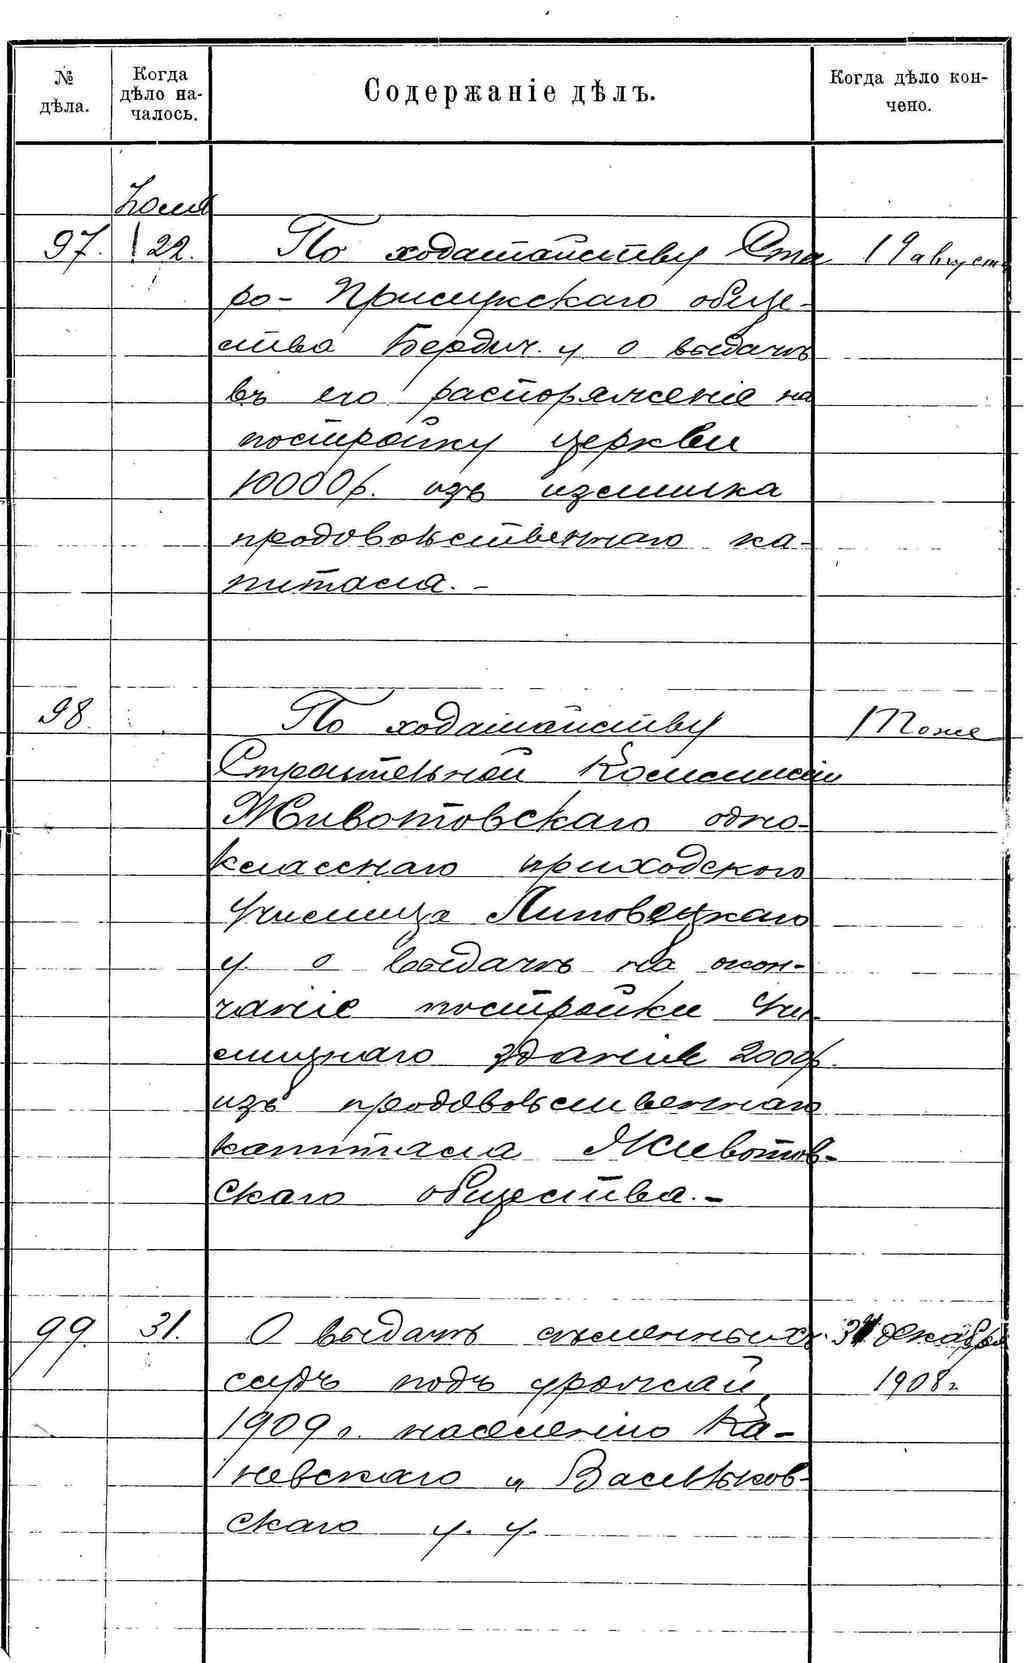 № дѣла.
Когда дѣло началось.
Содержаніе дѣлъ.
Когда дѣло кончено.
Іюля
97. 22. По ходатайству Ста 19 августа
ро-Прилукскаго обще-
ства Бердич. у. о выдачѣ
въ его распоряженіе на
постройку церкви
10000 р. изъ излишка
продовольственнаго ка-
питала. -
98. По ходатайству Тоже
Строительной Коммиссіи
Животовскаго одно-
класснаго приходскаго
училища Липовецкаго
у. о выдачѣ на окон-
чаніе постройки учи-
лищнаго зданія 2000 р.
изъ продовольственнаго
капитала Животов-
скаго общества. -
99. 31. О выдачѣ сѣменныхъ 31 декабря
ссудъ подъ урожай 1908 г.
1909 г. населенію Ка-
невскаго и Васильков-
скаго у. у.